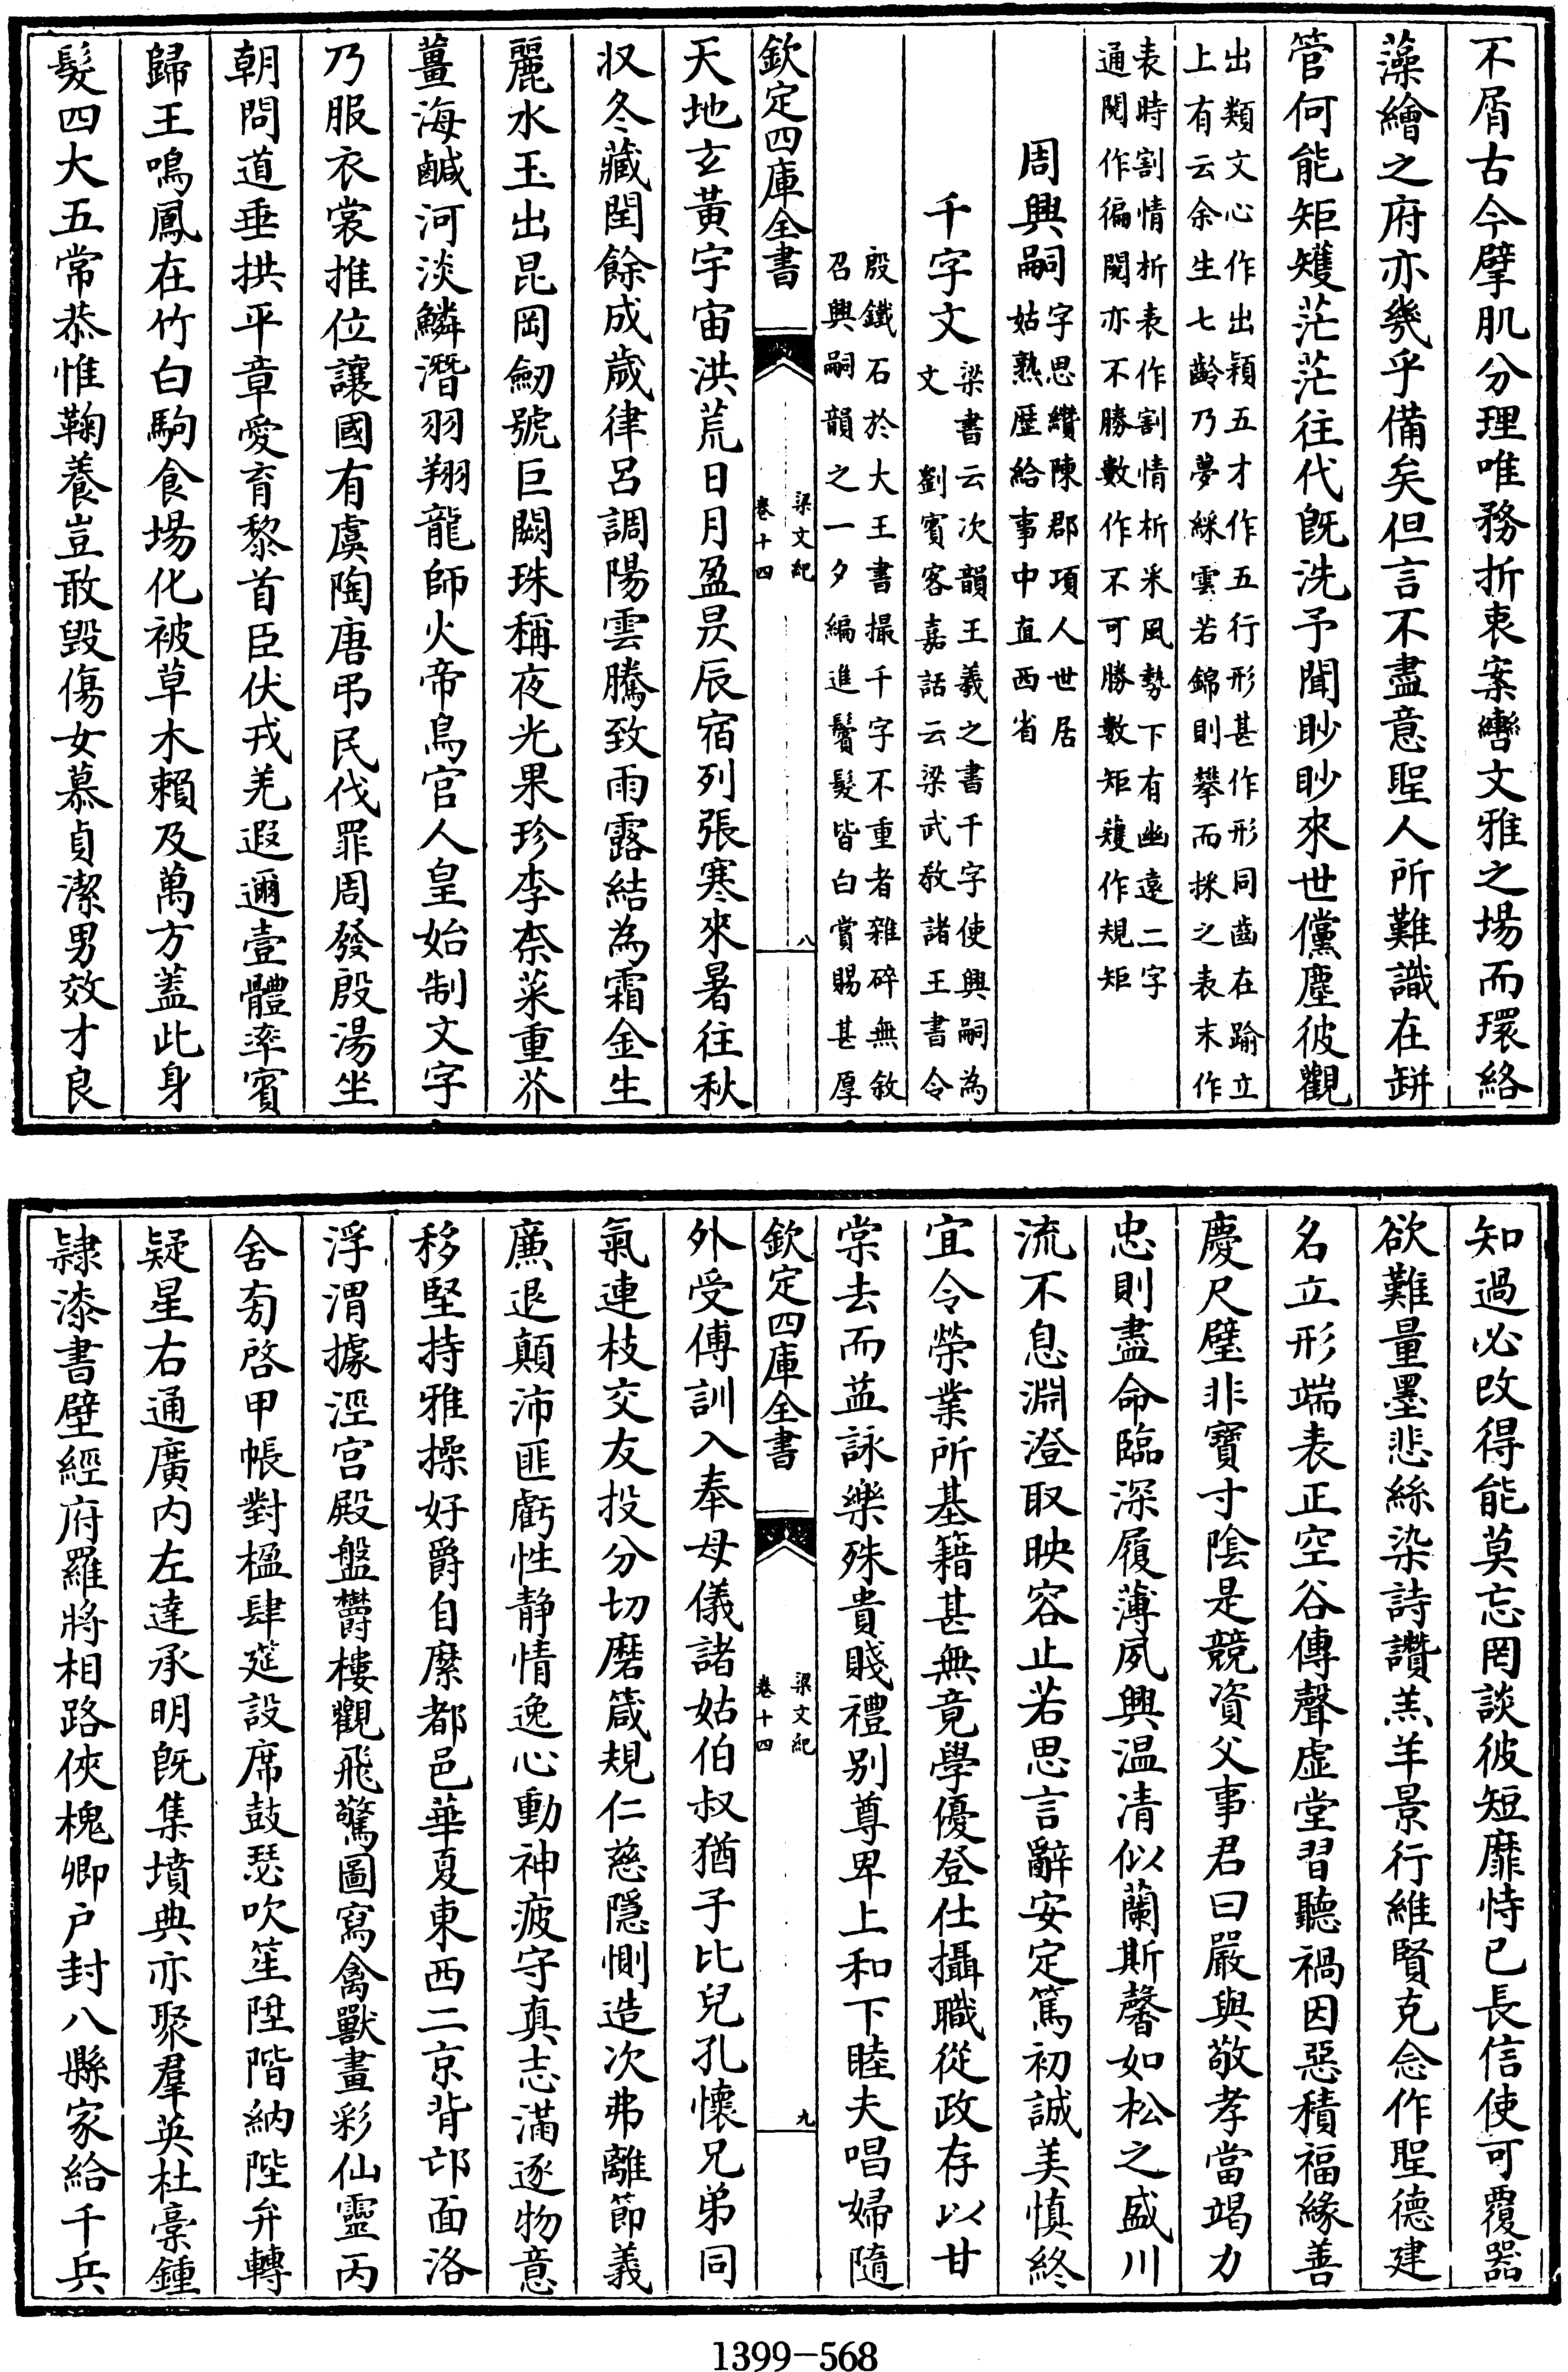 不屑古今擘肌分理唯務折衷案轡文雅之場而環絡
藻繪之府亦幾乎備矣但言不盡意聖人所難識在缾
管何能矩矱茫茫往代既洗予聞眇眇來世儻塵彼觀
出類文心作出穎五才作五行形甚作形同齒在踰立
上有云余生七齡乃夢綵雲若錦則攀而採之表末作
表時割情析表作割情析采風勢下有幽遠二字
通閱作徧閱亦不勝數作不可勝數矩矱作規矩
周興嗣字思纘陳郡項人世居
姑熟歷給事中直西省
千字文梁書云次韻王羲之書千字使興嗣為
文 劉賓客嘉話云梁武敎諸王書令
殷鐵石於大王書撮千字不重者雜碎無敘
召興嗣韻之一夕編進鬢髮皆白賞賜甚厚
欽定四庫全書
梁文紀
卷十四
八
天地玄黃宇宙洪荒日月盈昃辰宿列張寒來暑往秋
収冬藏閏餘成歲律呂調陽雲騰致雨露結為霜金生
麗水玉出昆岡劒號巨闕珠稱夜光果珍李柰菜重芥
薑海鹹河淡鱗潛羽翔龍師火帝鳥官人皇始制文字
乃服衣裳推位讓國有虞陶唐弔民伐罪周發殷湯坐
朝問道垂拱平章愛育黎首臣伏戎羌遐邇壹體率賓
歸王鳴鳳在竹白駒食場化被草木賴及萬方蓋此身
髮四大五常恭惟鞠養豈敢毀傷女慕貞潔男效才良
知過必改得能莫忘罔談彼短靡恃已長信使可覆器
欲難量墨悲絲染詩讚羔羊景行維賢克念作聖德建
名立形端表正空谷傳聲虛堂習聽禍因惡積福緣善
慶尺璧非寶寸陰是競資父事君曰嚴與敬孝當竭力
忠則盡命臨深履薄夙興温凊似蘭斯馨如松之盛川
流不息淵澄取映容止若思言辭安定篤初誠美慎終
宜令榮業所基籍甚無竟學優登仕攝職從政存以甘
棠去而益詠樂殊貴賤禮别尊卑上和下睦夫唱婦隨
欽定四庫全書
梁文紀
卷十四
九
外受傅訓入奉母儀諸姑伯叔猶子比兒孔懷兄弟同
氣連枝交友投分切磨箴規仁慈隱惻造次弗離節義
亷退顛沛匪虧性静情逸心動神疲守真志滿逐物意
移堅持雅操好爵自縻都邑華夏東西二京背邙面洛
浮渭據涇宮殿盤欝樓觀飛驚圖寫禽獸畫彩仙靈丙
舍㫄啓甲帳對楹肆筵設席鼓瑟吹笙陞階納陛弁轉
疑星右通廣内左達承明既集墳典亦聚羣英杜稾鍾
隷漆書壁經府羅將相路俠槐卿户封八縣家給千兵
1399-568